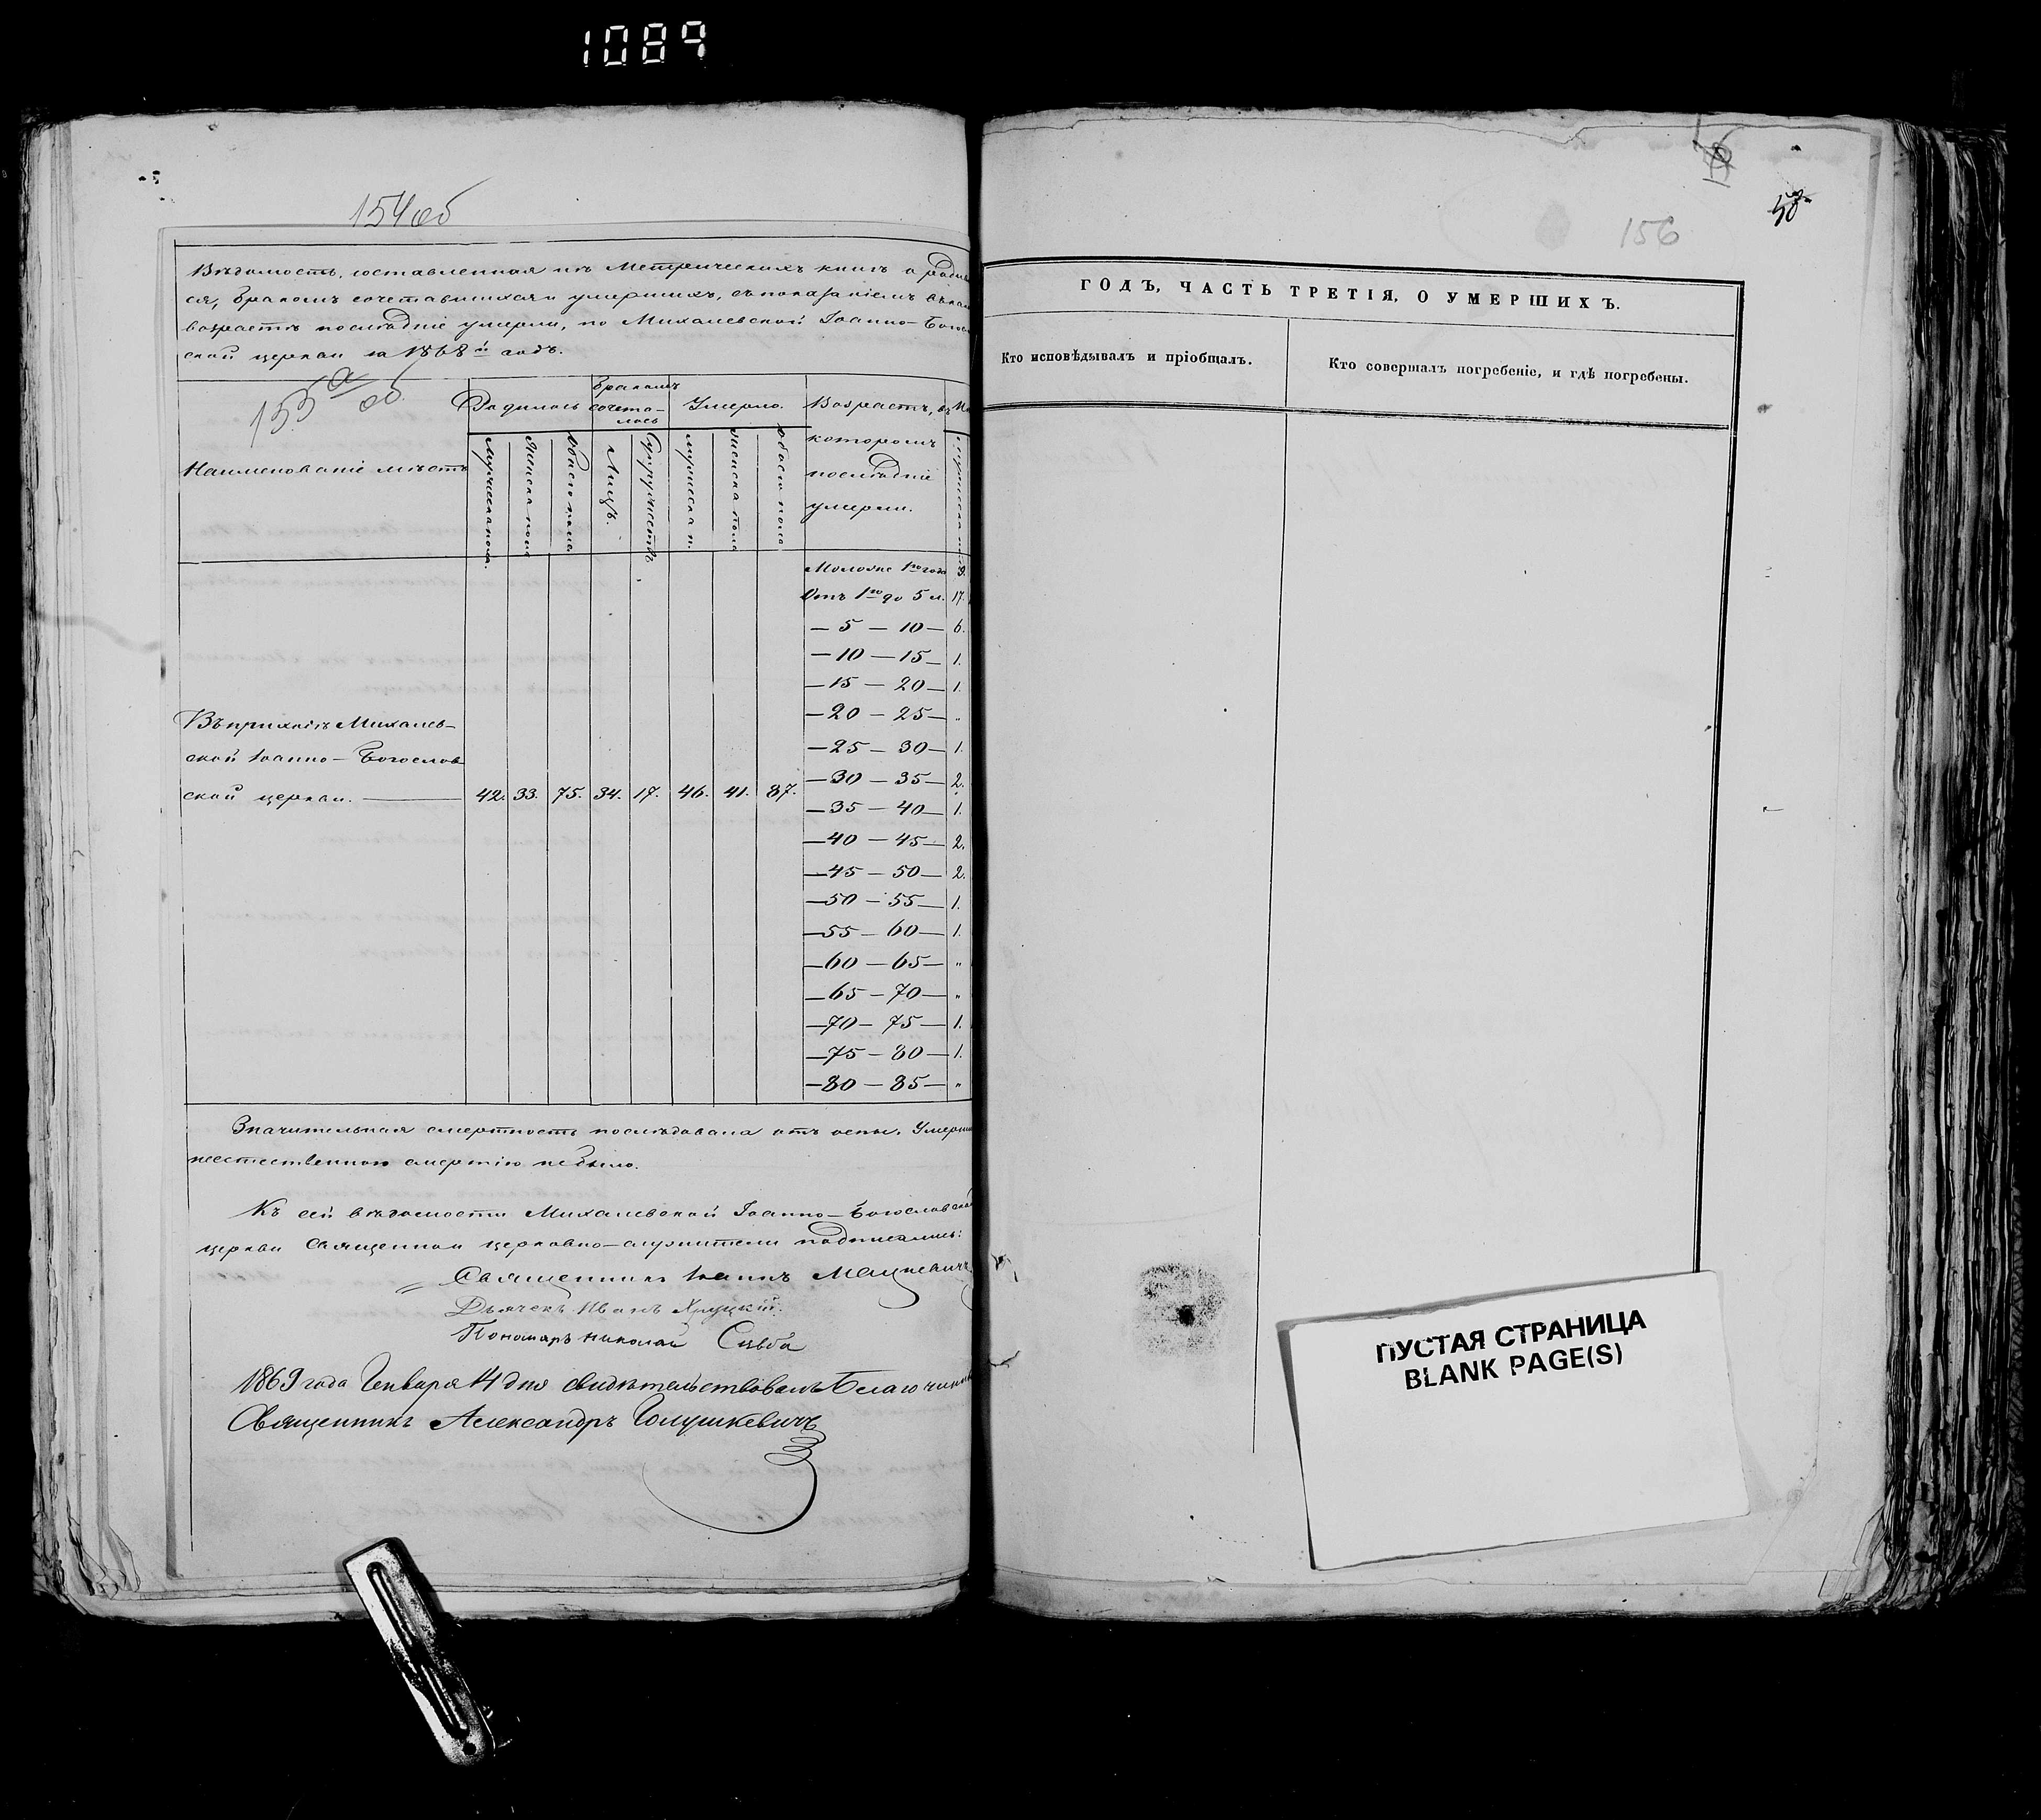 1089
154 об
Вѣдомость, составленная изъ Метрическихъ книгъ о родив
ся, бракомъ сочетавшихся и умершихъ, съ показаніемъ въ как
возрастѣ послѣдніе умерли, по Михалевской Іоанно-Богос
ской церкви за 1868й годъ.
155 а об
Наименованіе мѣстъ
Родилось
Бракомъ сочета-
лось
Умерло.
Возрастъ, въ
которомъ
послѣдніе
умерли.
Мужеска пола.
Женска пола
Обоего пола
Лицъ.
Супружествъ
мужеска п.
женска пола
обоего пола
Моложе 1го года 8.
Отъ 1го до 5 л. 17.
— 5 — 10 — 6.
— 10 — 15 — 1.
— 15 — 20 — 1.
— 20 — 25 — "
— 25 — 30 — 1.
— 30 — 35 — 2.
— 35 — 40 — 1.
— 40 — 45 — 2.
— 45 — 50 — 2.
— 50 — 55 — 1.
— 55 — 60 — 1.
— 60 — 65 — "
— 65 — 70 — "
— 70 — 75 — 1.
— 75 — 80 — 1.
— 80 — 85 — "
Въ приходѣ Михалев-
ской Іоанно-Богослов
ской церкви. — 42. 33. 75. 34. 17. 46. 41. 87.
Значительная смертность послѣдовала отъ оспы. Умерш
неестественною смертію не было.
Къ сей вѣдомости Михалевской Іоанно-Богословской
церкви Священно и церковно-служители подписались:
Священникъ Іоаннъ Мацкевичъ
Дьячекъ Иванъ Хруцкій.
Пономарь Николай
1869 года Генваря 4 дня свидѣтельствовалъ Благочин
Священникъ Александръ Голушкевичъ
156
ГОДЪ, ЧАСТЬ ТРЕТІЯ, О УМЕРШИХЪ.
Кто исповѣдывалъ и пріобщалъ.
Кто совершалъ погребеніе, и гдѣ погребены.
ПУСТАЯ СТРАНИЦА
BLANK PAGE(S)